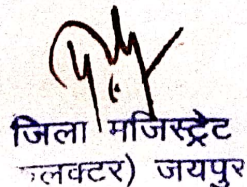 जिला मजिस्ट्रेट
लक्टर) जयपुर